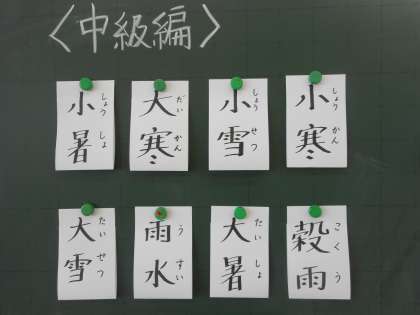 〈中級編〉
小暑 しょうしょ
大寒 だいかん
小雪 しょうせつ
小寒 しょうかん
大雪 たいせつ
雨水 うすい
大暑 たいしょ
穀雨 こくう